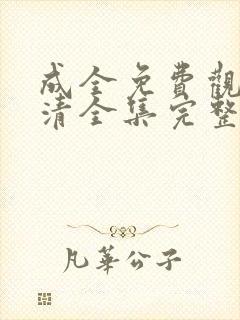 成全免費觀
清全集完整
凡華公子